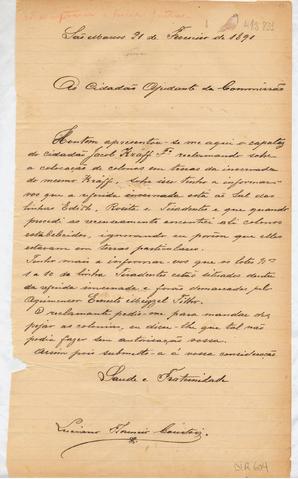 São Marcos 21 de Fevereiro de 1891
Ao Cidadão Ajudante da Commissão
Hontem apresentou-se me aqui o capataz
do cidadão Jacob Kräff Fº reclamando sobre
a colocação de colonos em terras da invernada
do mesmo Kräff, sobre isso tenho a informar-
vos que a referida invernada está ao Sul das
linhas Edith, Rosita e Tiradentes, e que quando
procedi ao recenseamento encontrei ali colonos
estabelecidos, ignorando eu porém que elles
estavam em terras particulares.
Tenho mais a informar-vos que os lotes nos
1 a 10 da linha Tiradentes estão situados dentro
da referida invernada e foram demarcados pelo
Agrimensor Ernesto Filho.
O reclamante pediu-me para mandar des-
pejar as colonias, eu disse-lhe que tal não
podia fazer sem autorização vossa.
Assim pois submetto-a á vossa consideração
Saude e Fraternidade
Luciano
604